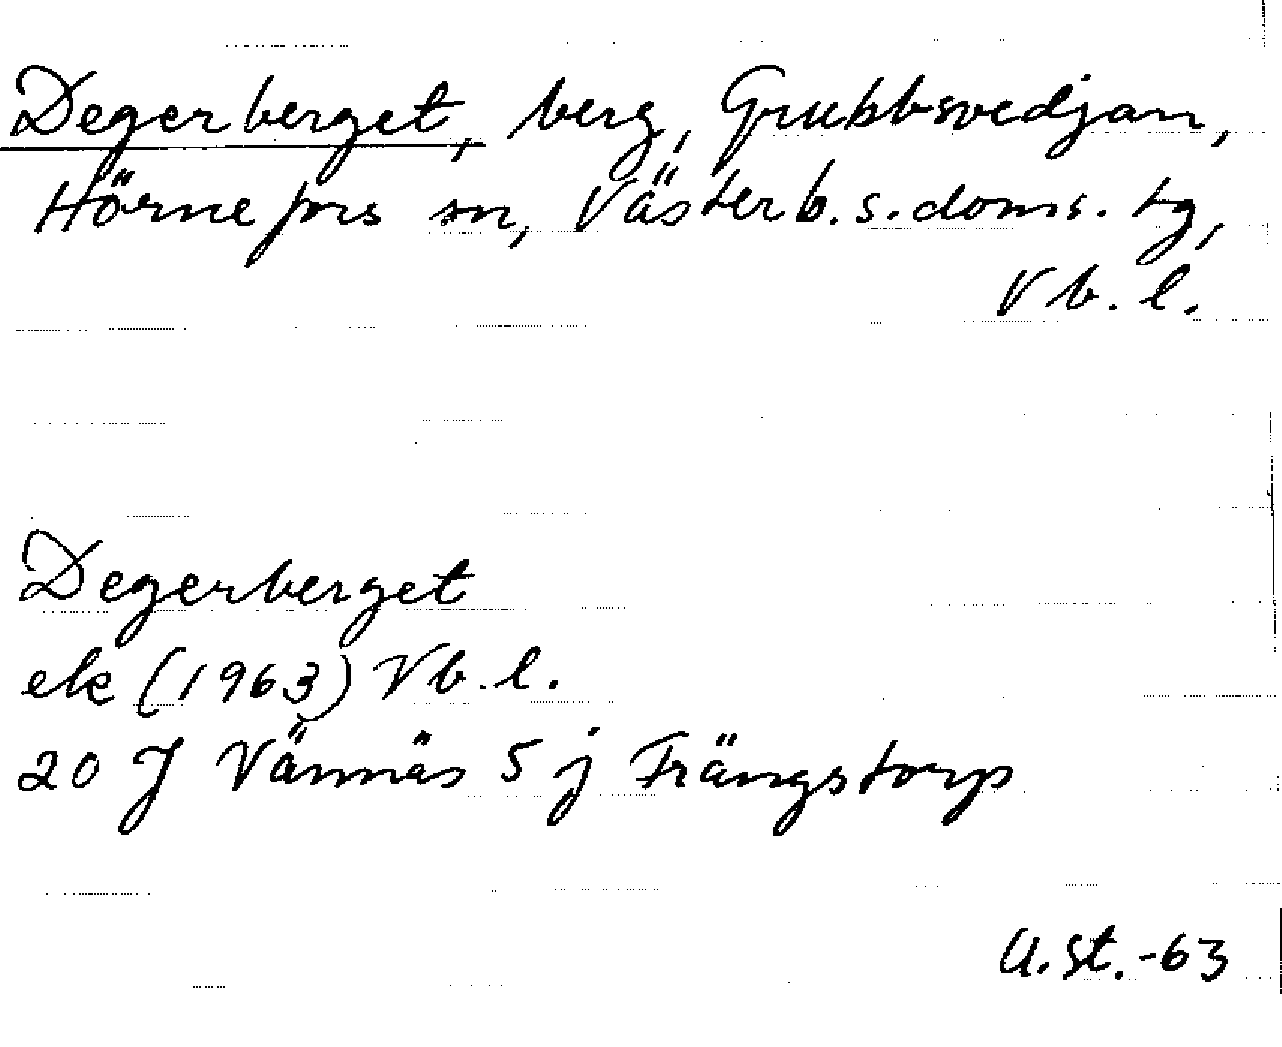 Degerberget, berg, Grubbsvedjan,
Hörnefors sn, Västerb. s. doms. tg,
Vb. l.
Degerberget
ek (1963) Vb. l.
20 J Vännäs 5 j Frängstorp
U. St. -63